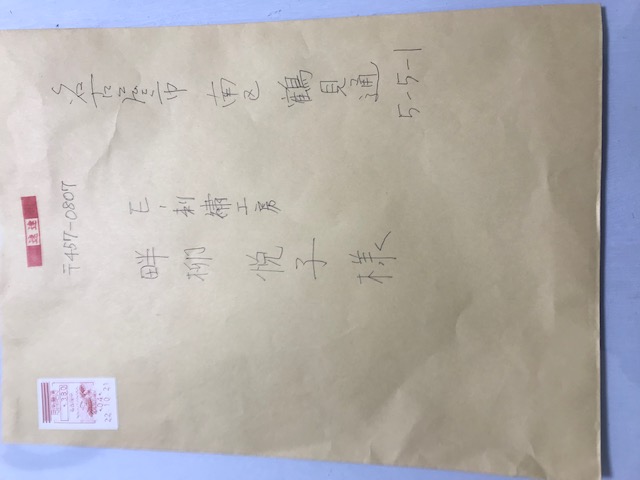 速達
〒457-0807
名古屋市 南区 鶴見通
5-5-1
E・刺繍工房
畔柳 悦子 様
22.10.21